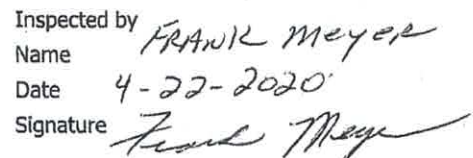 Inspected by
Name FRANK MEYER
Date 4-22-2020
Signature Frank Meyer